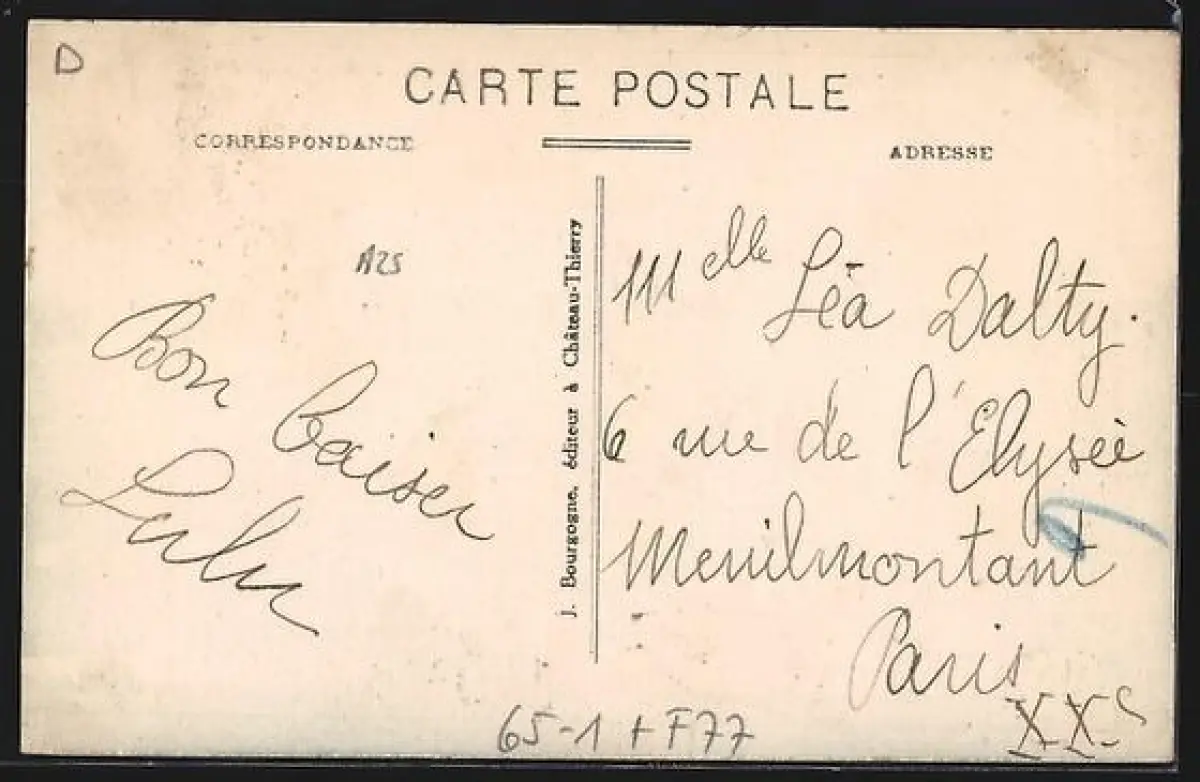 D
CARTE POSTALE
CORRESPONDANCE
ADRESSE
A25
Bon baiser
Lulu
J. Bourgogne, éditeur à Château-Thierry
Melle Léa Dalty.
6 rue de l'Elysée
Menilmontant
Paris
XXe
65-1 + F77